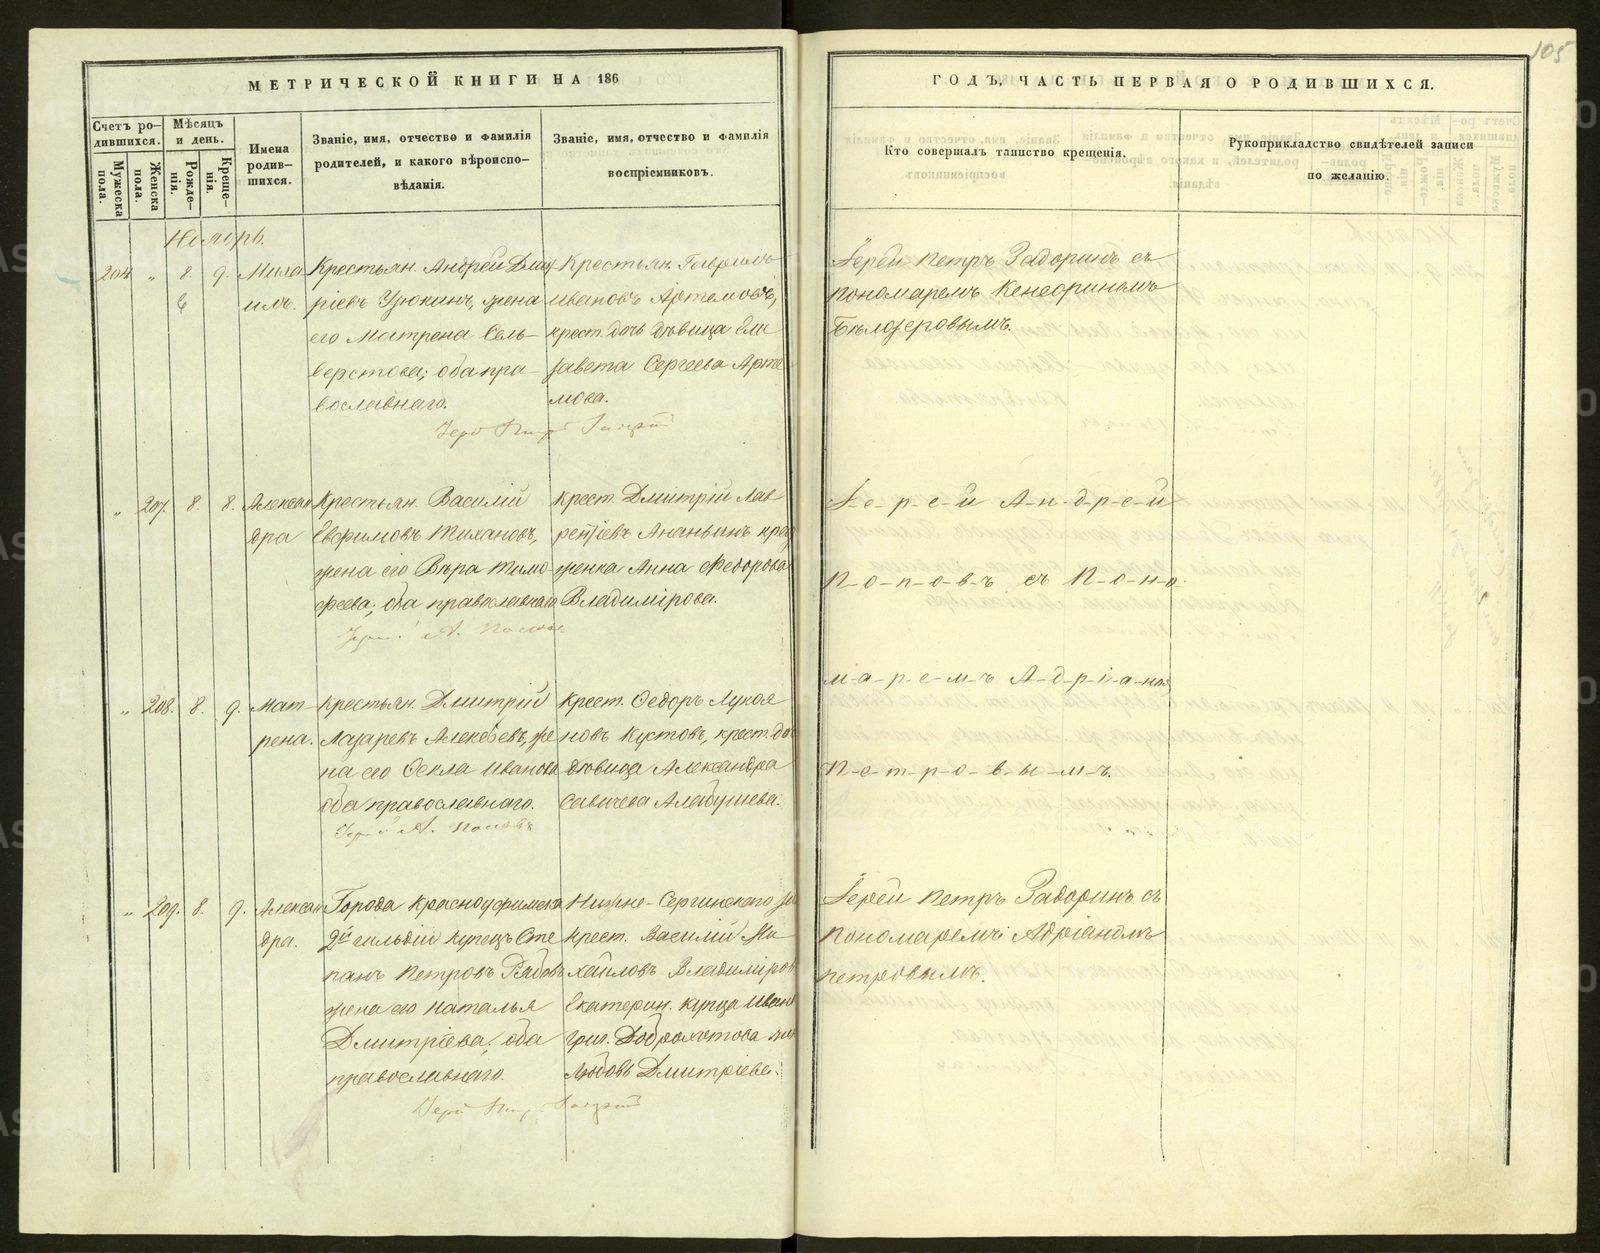 105
МЕТРИЧЕСКОЙ КНИГИ НА 186
ГОДЪ, ЧАСТЬ ПЕРВАЯ О РОДИВШИХСЯ.
Счетъ родившихся.
Мужеска пола.
Женска пола.
Мѣсяцъ и день.
Рожденія.
Крещенія.
Имена родившихся.
Званіе, имя, отчество и фамилія
родителей, и какого вѣроиспо-
вѣданія.
Званіе, имя, отчество и фамилія
воспріемниковъ.
Кто совершалъ таинство крещенія.
Рукоприкладство свидѣтелей записи
по желанію.
Ноябрь.
204 „ 8 9.
6
Миха
илъ.
Крестьян. Андрей Дмит
ріевъ Узюкинъ, жена
его Матрена Сель-
верстова; оба пра-
вославнаго.
Крестьян.
Ивановъ Артемовъ,
крест. дочь дѣвица Ели
завета Сергеева Арте
мова.
Іерей Петръ Задоринъ съ
пономаремъ
Бѣлозеровымъ.
„ 207. 8. 8.
Алексан
дра
Крестьян. Василій
Евфимовъ Тихановъ,
жена его Вѣра Тимо
феева; оба православнаго
Крест. Дмитрій Лав
рентіевъ Ананьинъ крест
женка Анна Федорова
Владимірова.
І-е-р-е-й А-н-д-р-е-й
П-о-п-о-в-ъ съ П-о-н-о-
м-а-р-е-м-ъ А-д-р-і-а-но
П-е-т-р-о-в-ы-м-ъ.
„ 208. 8. 9.
Мат-
рена.
Крестьян. Дмитрій
Лазаревъ Алексѣевъ, же
на его Ѳекла Иванова
оба православнаго.
Крест. Ѳедоръ Лукоя
новъ Кустовъ, крест. до
дѣвица Александра
Савичева Алабушева.
Іерей А. Поповъ
„ 209. 8. 9.
Алексан
дра.
Города Красноуфимска
2й гильдіи купецъ Сте
панъ Петровъ Рябовъ
жена его Наталья
Дмитріева, оба
православнаго.
Нижне-Сергинскаго за
крест. Василій Ми
хайловъ Владиміров
Екатерин. купца Иван
Григ. Доброхотова
Любовь Дмитріева.
Іерей Петръ Задоринъ съ
пономаремъ Адріаномъ
Петровымъ.